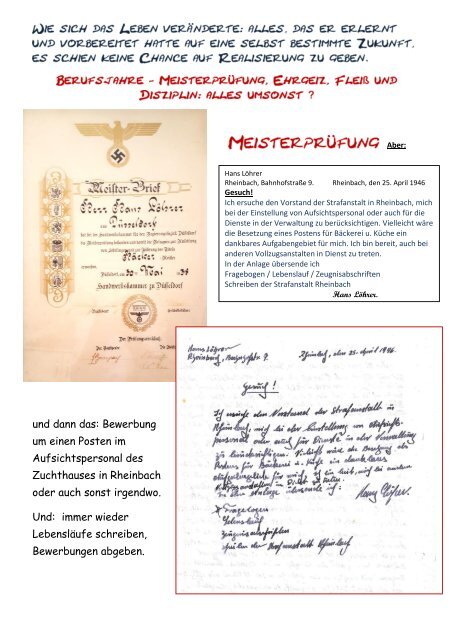 Wie sich das Leben veränderte: alles, das er erlernt
und vorbereitet hatte auf eine selbst bestimmte Zukunft,
es schien keine Chance auf Realisierung zu geben.
Berufsjahre – Meisterprüfung, Ehrgeiz, Fleiß und
Disziplin: alles umsonst ?
Meisterprüfung Aber:
Meister-Brief
Herr Hans Löhrer
Düsseldorf
Bäcker
30. Mai
Handwerkskammer zu Düsseldorf
Hans Löhrer
Rheinbach, Bahnhofstraße 9. Rheinbach, den 25. April 1946
Gesuch!
Ich ersuche den Vorstand der Strafanstalt in Rheinbach, mich
bei der Einstellung von Aufsichtspersonal oder auch für die
Dienste in der Verwaltung zu berücksichtigen. Vielleicht wäre
die Besetzung eines Postens für Bäckerei u. Küche ein
dankbares Aufgabengebiet für mich. Ich bin bereit, auch bei
anderen Vollzugsanstalten in Dienst zu treten.
In der Anlage übersende ich
Fragebogen / Lebenslauf / Zeugnisabschriften
Schreiben der Strafanstalt Rheinbach
Hans Löhrer.
und dann das: Bewerbung
um einen Posten im
Aufsichtspersonal des
Zuchthauses in Rheinbach
oder auch sonst irgendwo.
Und: immer wieder
Lebensläufe schreiben,
Bewerbungen abgeben.
Hans Löhrer
Rheinbach, 9. Rheinbach, den 25. April 1946.
Gesuch!
Ich ersuche den Vorstand der Strafanstalt in
Rheinbach, mich bei der Einstellung von Aufsichts-
personal oder auch für Dienste in der Verwaltung
zu berücksichtigen. Vielleicht wäre die Besetzung eines
Postens für Bäckerei u. Küche ein dankbares
Aufgabengebiet für mich. Ich bin bereit, auch bei anderen
in Dienst zu treten.
In der Anlage übersende ich:
Hans Löhrer.
Fragebogen
Lebenslauf
Zeugnisabschriften
Schreiben der Strafanstalt Rheinbach